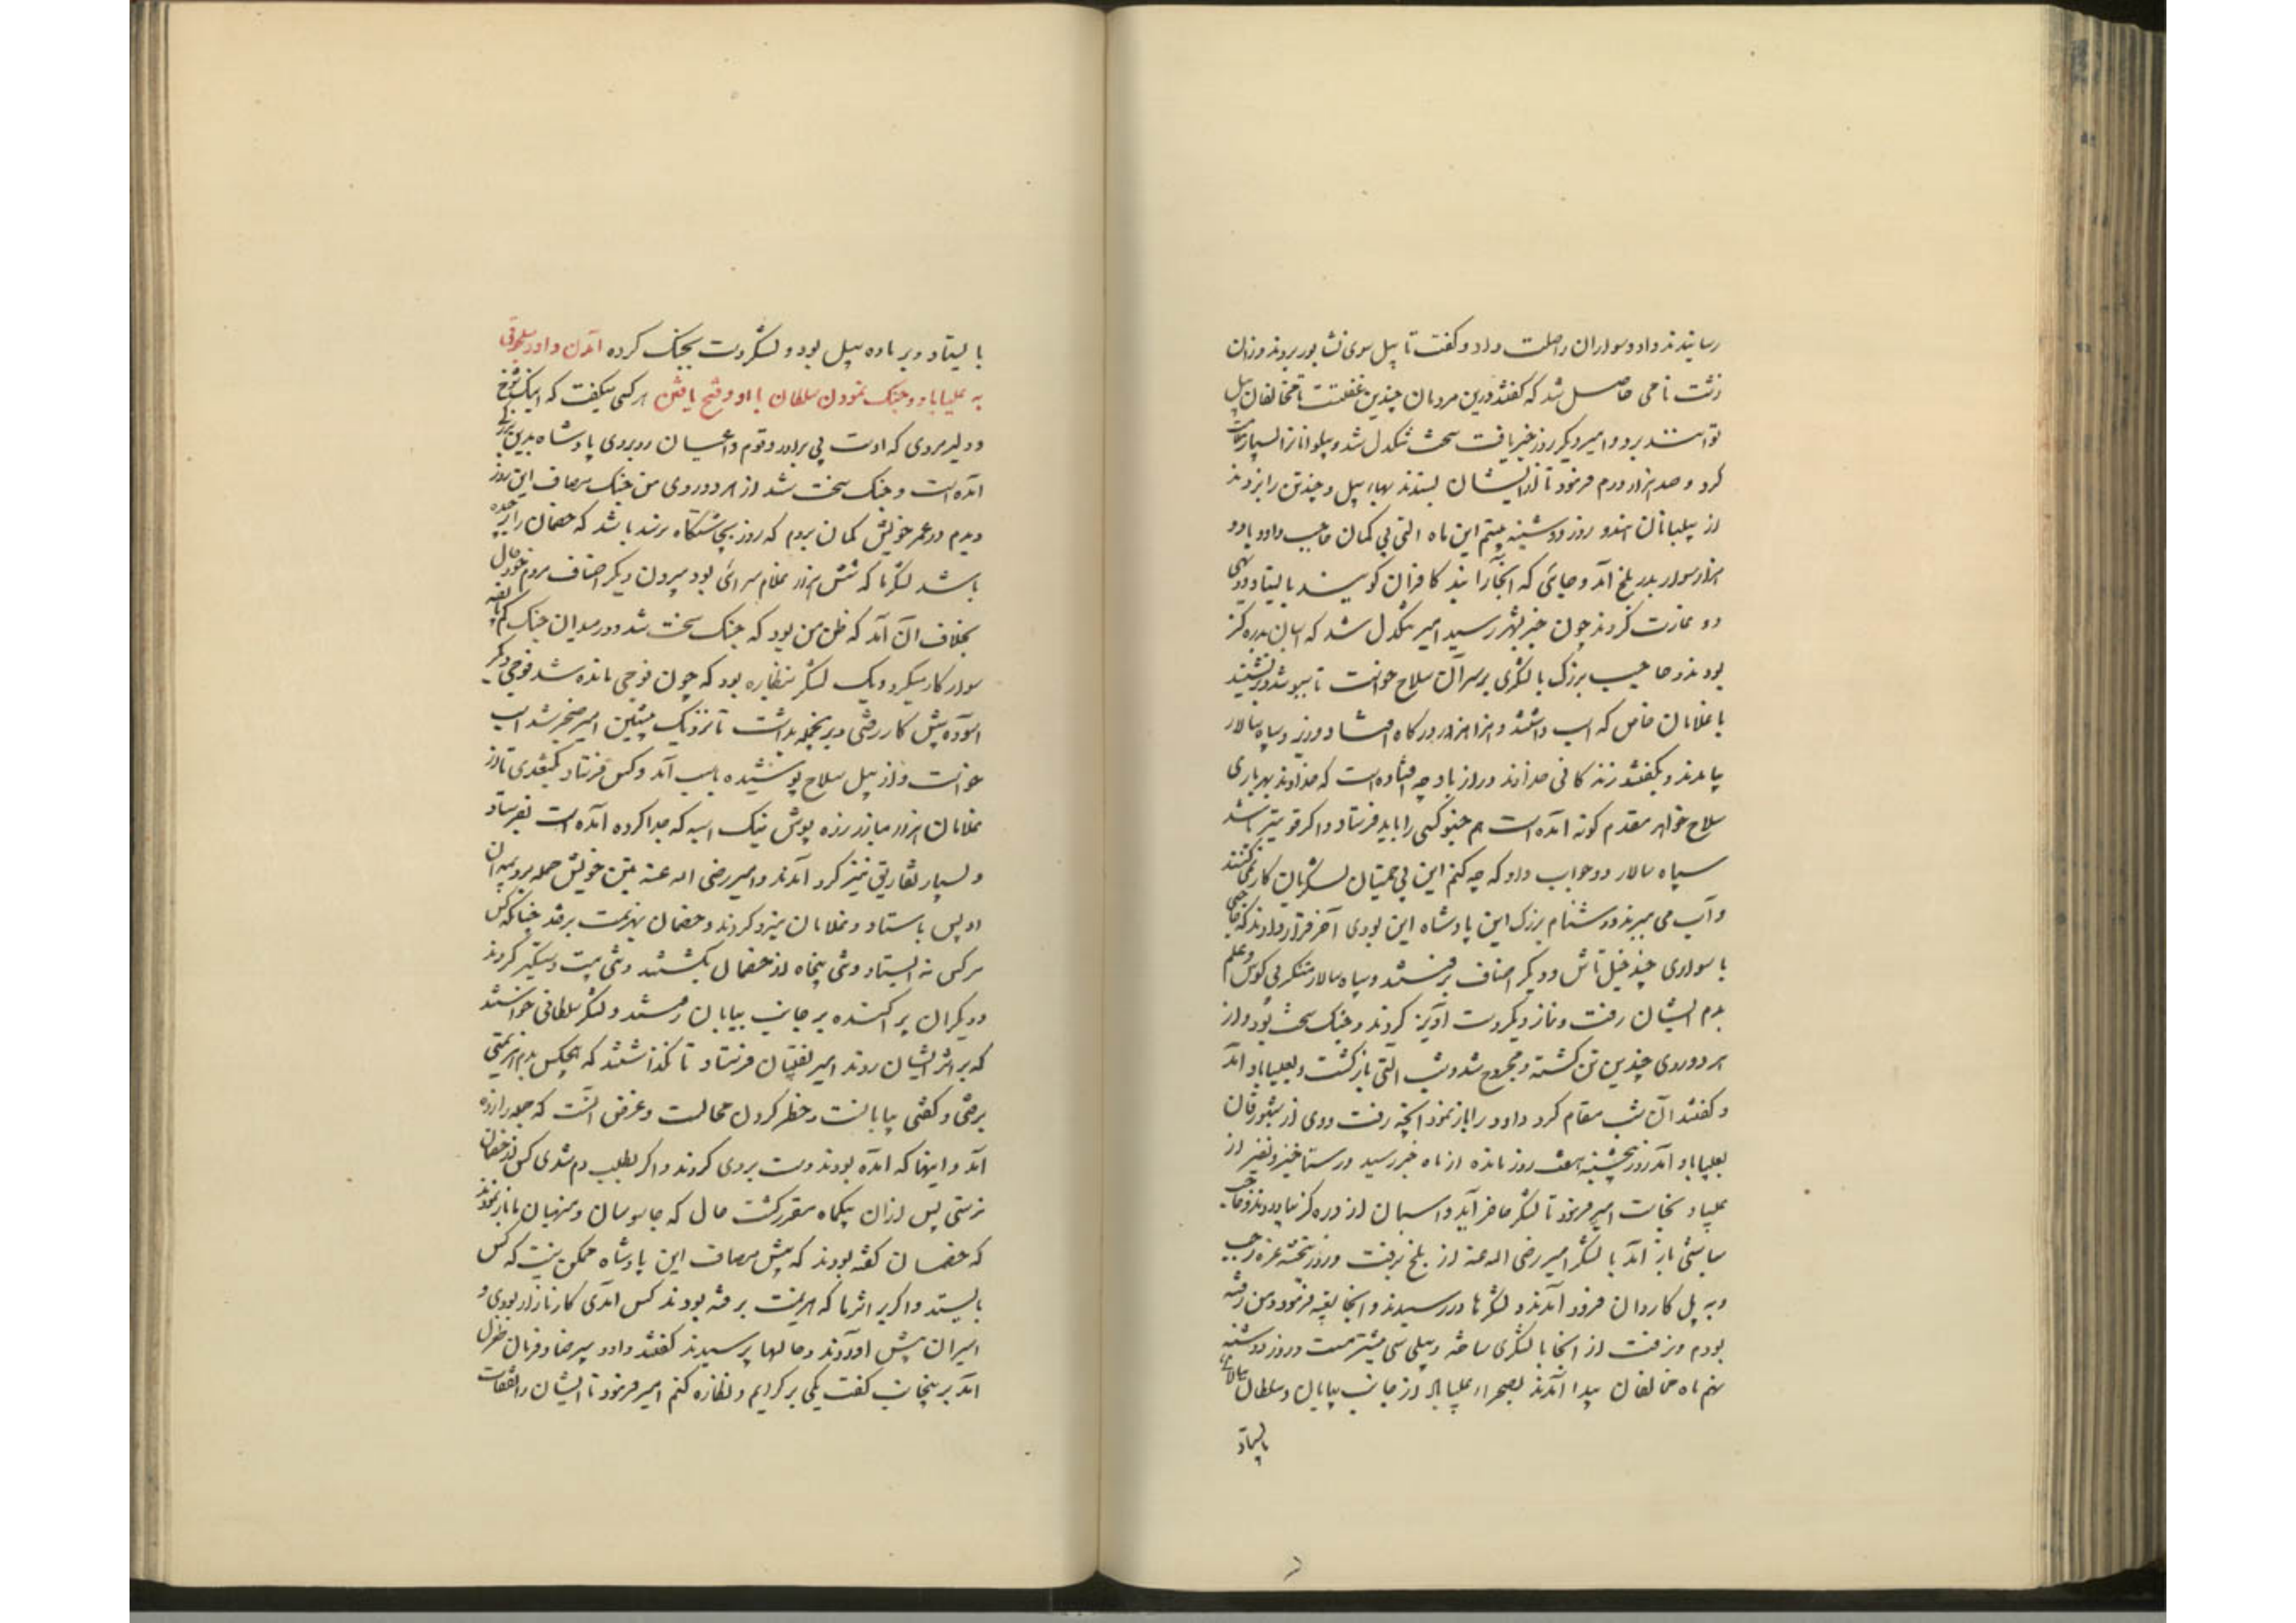 رسانیدند داود سواران را صلت داد و گفت تا پیل سوی نشابور بردند وزان
زشت نامی حاصل شد که گفتند درین مردمان چندین غفلتست تا مخالفان پیل
توانستند برد و امیر دیگر روز خبر یافت سخت تنگدل شد و پیلوانانرا بسیار ملامت
کرد و صد هزار درم فرمود تا از ایشان بستدند بهاء پیل و چند تن را بزدند
از پیلبانان هندو روز دوشنبه بیستم این ماه التی سکمان حاجب داود با دو
هزار سوار بدر بلخ آمد و جائی که آنجا را بند کافران گویند بایستاد و دیهی
دو غارت کردند چون خبر بشهر رسید امیر تنگدل شد که اسبان بدره گز
بودند و حاجب بزرگ با لشکری بر سر آن سلاح خواست تا بپوشد و برنشیند
با غلامان خاص که اسب داشتند و هزاهز در درگاه افتاد وزیر و سپاه سالار
بیامدند و بگفتند زندگانی خداوند دراز باد چه افتاده است که خداوند بهر باری
سلاح خواهد مقدم گونه آمده است هم چنو کسی را باید فرستاد و اگر قوی تر باشد
سپاه سالار رود جواب داد که چه کنم این بی حمیتان لشکریان کار نمی کنند
و آب می ببرند و دشنام بزرگ این پادشاه این بودی آخر قرار دادند که حاجبی
با سواری چند خیلتاش و دیگر اصناف برفتند و سپاه سالار متنکر بی کوس و علم
بدم ایشان رفت و نماز دیگر دست آویز کردند و جنگ سخت بود و از
هر دو روی چندین تن کشته و مجروح شد و شب التی بازگشت و بعلیاباد آمد
و گفتند آن شب مقام کرد داود را باز نمود آنچه رفت و وی از شبورقان
بعلیاباد آمد روز پنجشنبه هفت روز مانده از ماه خبر رسید در ستاخیز و نفیر از
علیاباد بخاست امیر فرمود تا لشکر حاضر آید و اسبان از دره گز بیاوردند و حاجب
سباشی باز آمد با لشکر امیر رضی الله عنه از بلخ برفت و روز پنجشنبه غره رجب
و به پل کاروان فرود آمدند و لشکرها در رسیدند و آنجا تعبیه فرمود و من رفته
بودم و برفت از آنجا با لشکری ساخته و پیلی سی بیشتر مست و روز دوشنبه
نهم ماه مخالفان پیدا آمدند بصحراء علیاباد از جانب بیابان و سلطان ببالائی
بایستاد
بایستاد و بر ماده پیل بود و لشکر دست بجنگ کرده آمدن داود سلجوقی
به علیاباد و جنگ نمودن سلطان با او و فتح یافتن هر کسی میگفت که اینک شوخ
و دلیر مردی که اوست بی برادر و قوم و اعیان رو بروی پادشاه بدین بزرگی
آمده است و جنگ سخت شد از هر دو روی من جنگ مصاف این روز
دیدم در عمر خویش گمان بردم که روز بچاشتگاه نرسد باشد که خصمان را برچیده
باشند لشکر ما که شش هزار غلام سرائی بود بیرون دیگر اصناف مردم خود حال
بخلاف آن آمد که ظن من بود که جنگ سخت شد و در میدان جنگ کم پانصد
سوار کار میکرد و یک لشکر بنظاره بود که چون فوجی مانده شد فوجی دیگر
آسوده پیش کار رفتی و برینجمله بداشت تا نزدیک پیشین امیر ضجر شد اسب
خواست و از پیل سلاح پوشیده باسب آمد و کس فرستاد بکتغدی تا از
غلامان هزار مبارز زره پوش نیک اسبه که جدا کرده آمده است بفرستاد
و بسیار تفاریق نیز گرد آمدند و امیر رضی الله عنه بتن خویش حمله برد بمیدان
او پس باستاد و غلامان نیرو کردند و خصمان بهزیمت برفتند چنانکه کس
مر کس نه ایستاد و تنی پنجاه از خصمان بکشتند و تنی بیست دستگیر کردند
و دیگران پراکنده بر جانب بیابان رفتند و لشکر سلطانی خواستند
که بر اثر ایشان روند امیر نقیبان فرستاد تا نگذاشتند که هیچکس بدم هزیمتی
برفتی و گفتی بیابانست و خطر کردن محالست و غرض آنست که جمله را زده
آید و اینها که آمده بودند دست بردی کردند و اگر بطلب دم شدی کس از خصمان
نرستی پس ازان بیکماه مقرر گشت حال که جاسوسان و منهیان ما باز نمودند
که خصمان گفته بودند که پیش مصاف این پادشاه ممکن نیست که کس
بایستد و اگر بر اثر ما که بهزیمت برفته بودند کس آمدی کار ما زار بودی و
اسیران پیش آوردند و حالها پرسیدند گفتند داود بی رضا و فرمان طغرل
آمد برینجانب گفت یکی برگردیم و نظاره کنم امیر فرمود تا ایشان را نفقات